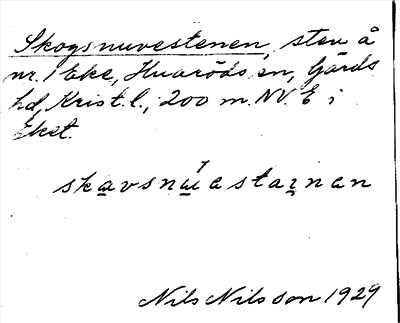 Skogsnuvestenen, sten å
nr. 1 Eke, Huaröds sn, Gärds
hd, Krist. l.; 200 m. NV. E i
Eket.
Nils Nilsson 1929